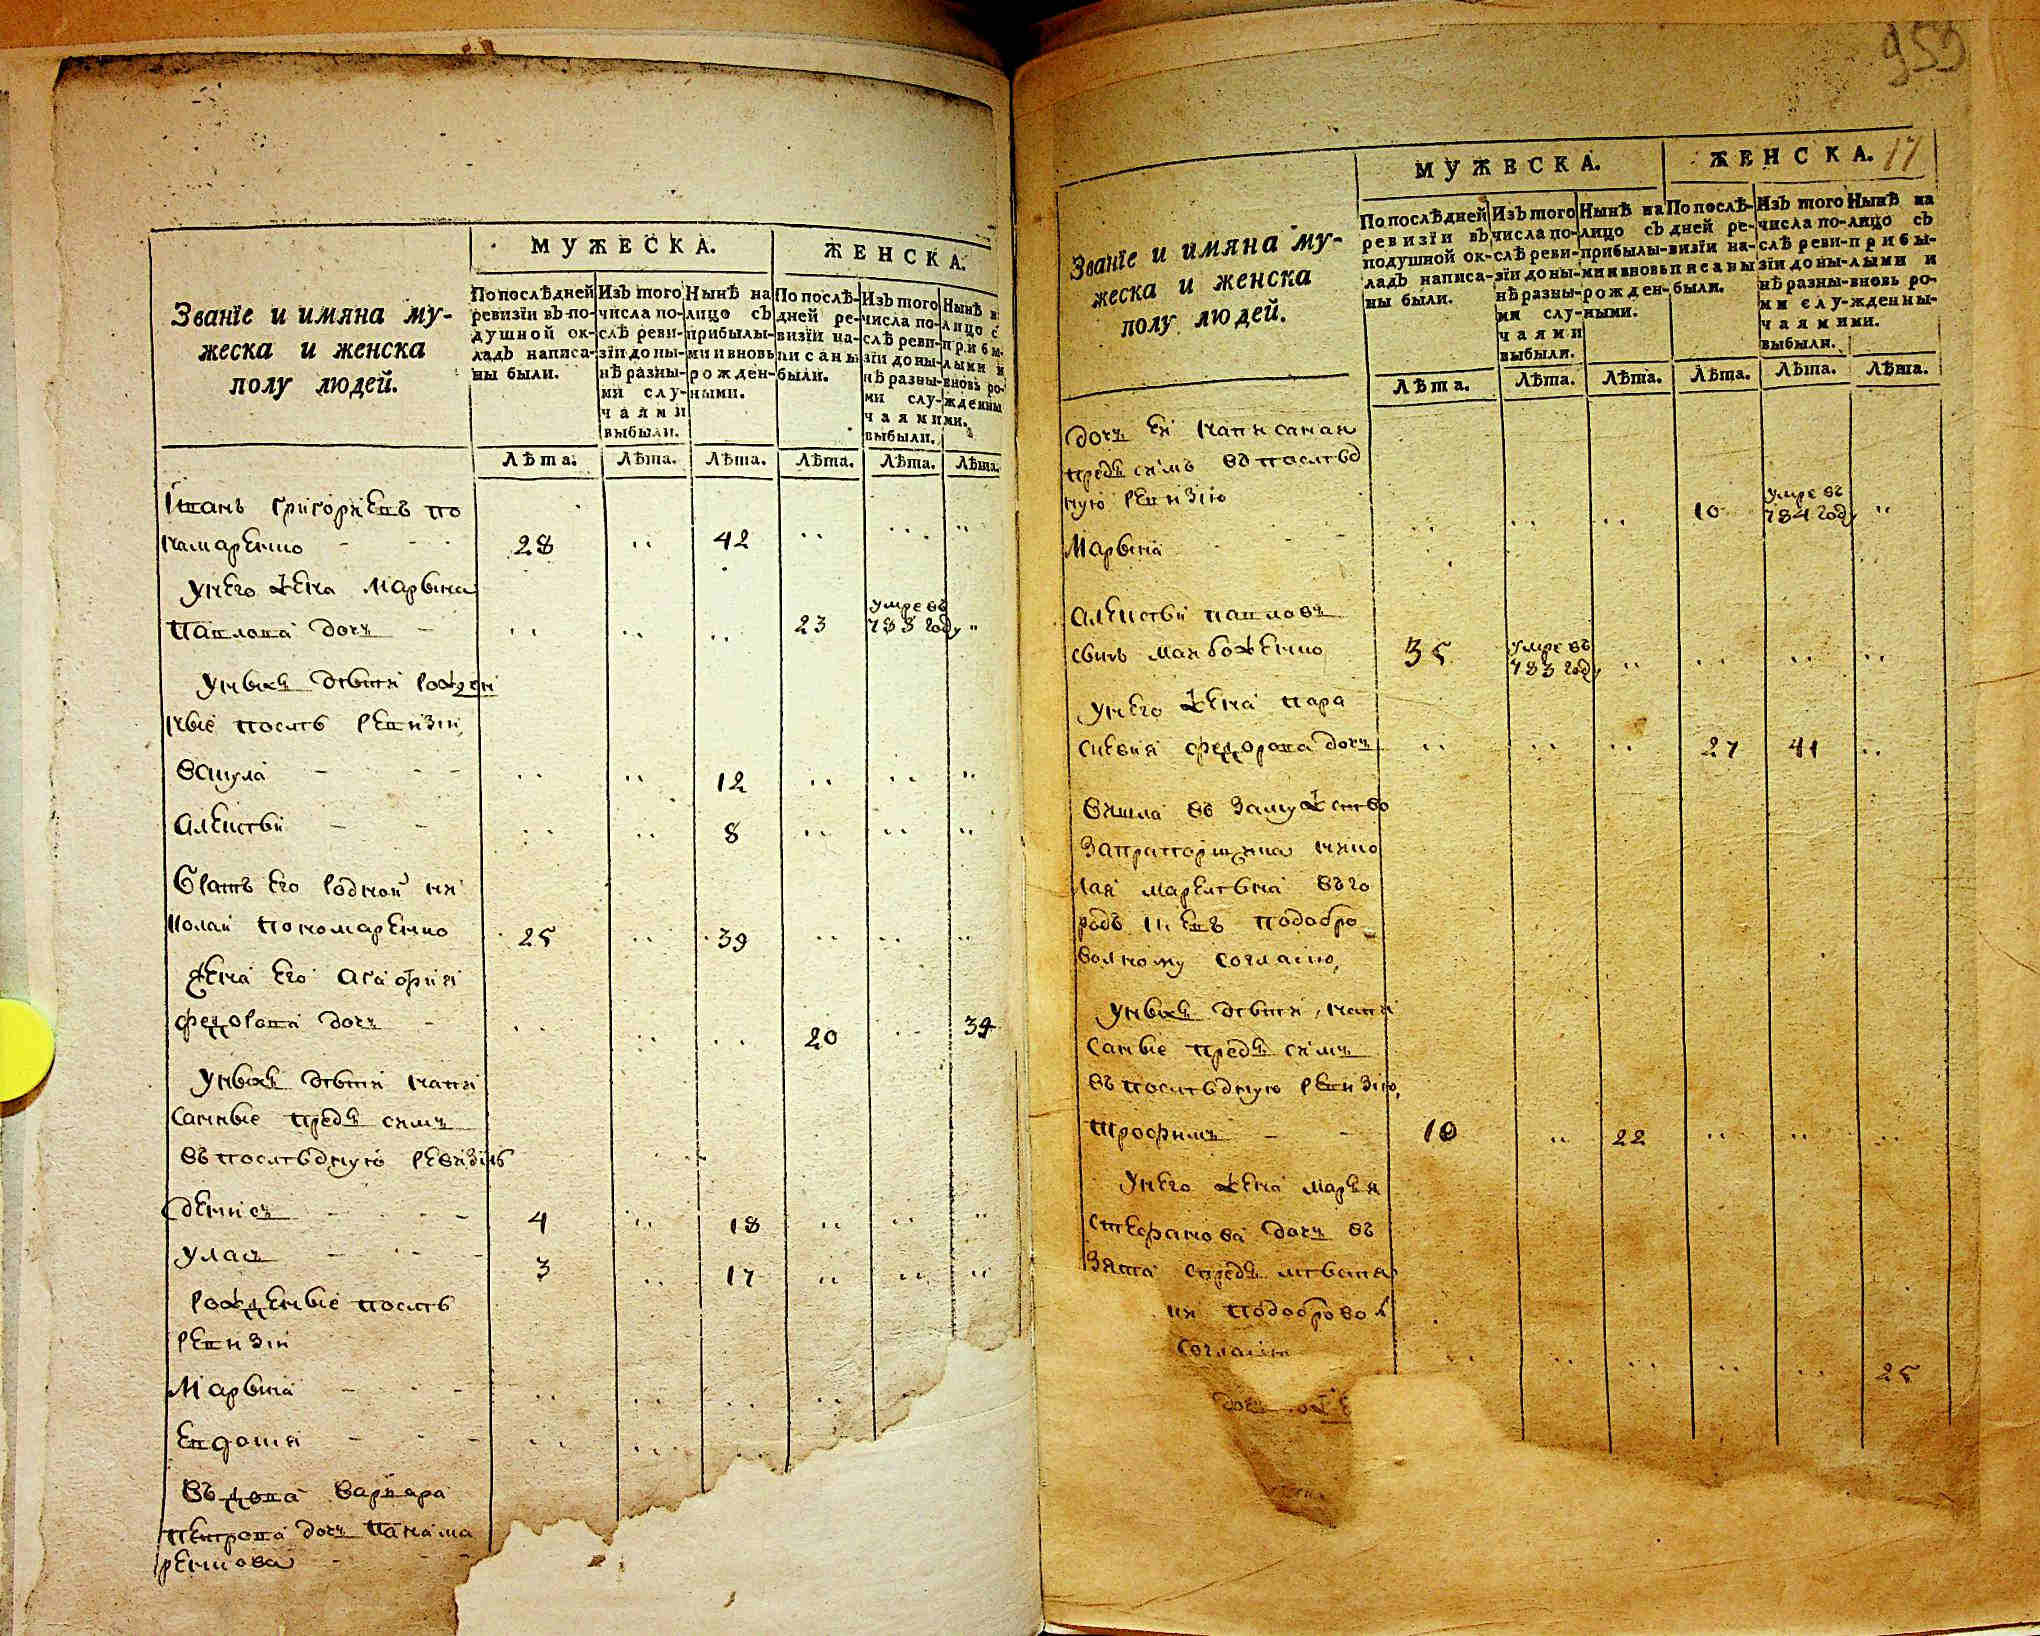 Званїе и имяна му-
жеска и женска
полу людей.
МУЖЕСКА.
ЖЕНСКА.
По послѣдней
ревизїи въ по-
душной ок-
ладъ написа-
ны были.
Изъ того
числа по-
слѣ реви-
зїи до ны-
нѣ разны-
ми слу-
чаями
выбыли.
Нынѣ на
лицо съ
прибылы-
ми и вновь
рожден-
ными.
По послѣ-
дней ре-
визїи на-
писаны
были.
Изъ того
числа по-
слѣ реви-
зїи до ны-
нѣ разны-
ми слу-
чаями
выбыли.
Нынѣ н
лицо с
прибы-
лыми и
вновь ро-
жденны
ми.
Лѣта. Лѣта. Лѣта. Лѣта. Лѣта. Лѣта.
Іванъ Григориевъ по
намаренко 28 42
унего жена Марѣна
Павлова дочь 23 умре въ 783 году
унѣхъ дѣти рожден
ные послѣ ревизіи,
вакула 12
Алексѣй 8
Братъ его родной ни
колай пономаренко 25 39
жена его Агафия
федорова дочь 20 34
унѣхъ дѣти напи
санные предъ симъ
въ последнуюю ревизію
денисъ 4 18
уласъ 3 17
рожденые послѣ
ревизіи
Марѣна
Евдокия
въдова варвара
петрова дочь панама
ренкова
953
17
Званїе и имяна му-
жеска и женска
полу людей.
МУЖЕСКА.
ЖЕНСКА.
По послѣдней
ревизїи въ
подушной ок-
ладъ написа-
ны были.
Изъ того
числа по-
слѣ реви-
зїи до ны-
нѣ разны-
ми слу-
чаями
выбыли.
Нынѣ на
лицо съ
прибылы-
ми и вновь
рожден-
ными.
По послѣ-
дней ре-
визїи на-
писаны
были.
Изъ того
числа по-
слѣ реви-
зїи до ны-
нѣ разны-
ми слу-
чаями
выбыли.
Нынѣ на
лицо съ
прибы-
лыми и
вновь ро-
жденны-
ми.
Лѣта. Лѣта. Лѣта. Лѣта. Лѣта. Лѣта.
дочь ей написаная
предъ симъ въ послѣд
нуюю ревизію
Марѣна 10 умре въ 784 году
Алексѣй павловъ
сынъ манбоженко 35 умре въ 783 году
унего жена пара
скевия федорова дочь 27 41
вышла въ замужство
запрапорщика нико
лая марелѣна въ го
родъ киевъ подобро
волному согласию,
унѣхъ дѣти, напи
саные предъ симъ
въ последнуюю ревизію,
трофимъ 10 22
унего жена мария
стефанова дочь въ
зята спредъ
ки подобровол
согласию 25
дочь